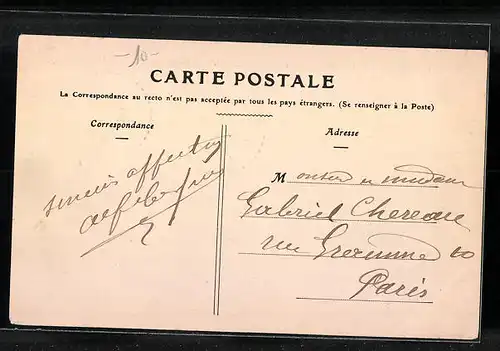 -10-
CARTE POSTALE
La Correspondance au recto n'est pas acceptée par tous les pays étrangers. (Se renseigner à la Poste)
Correspondance
Adresse
Monsieur et madame
Gabriel Chereau
rue 10
Paris